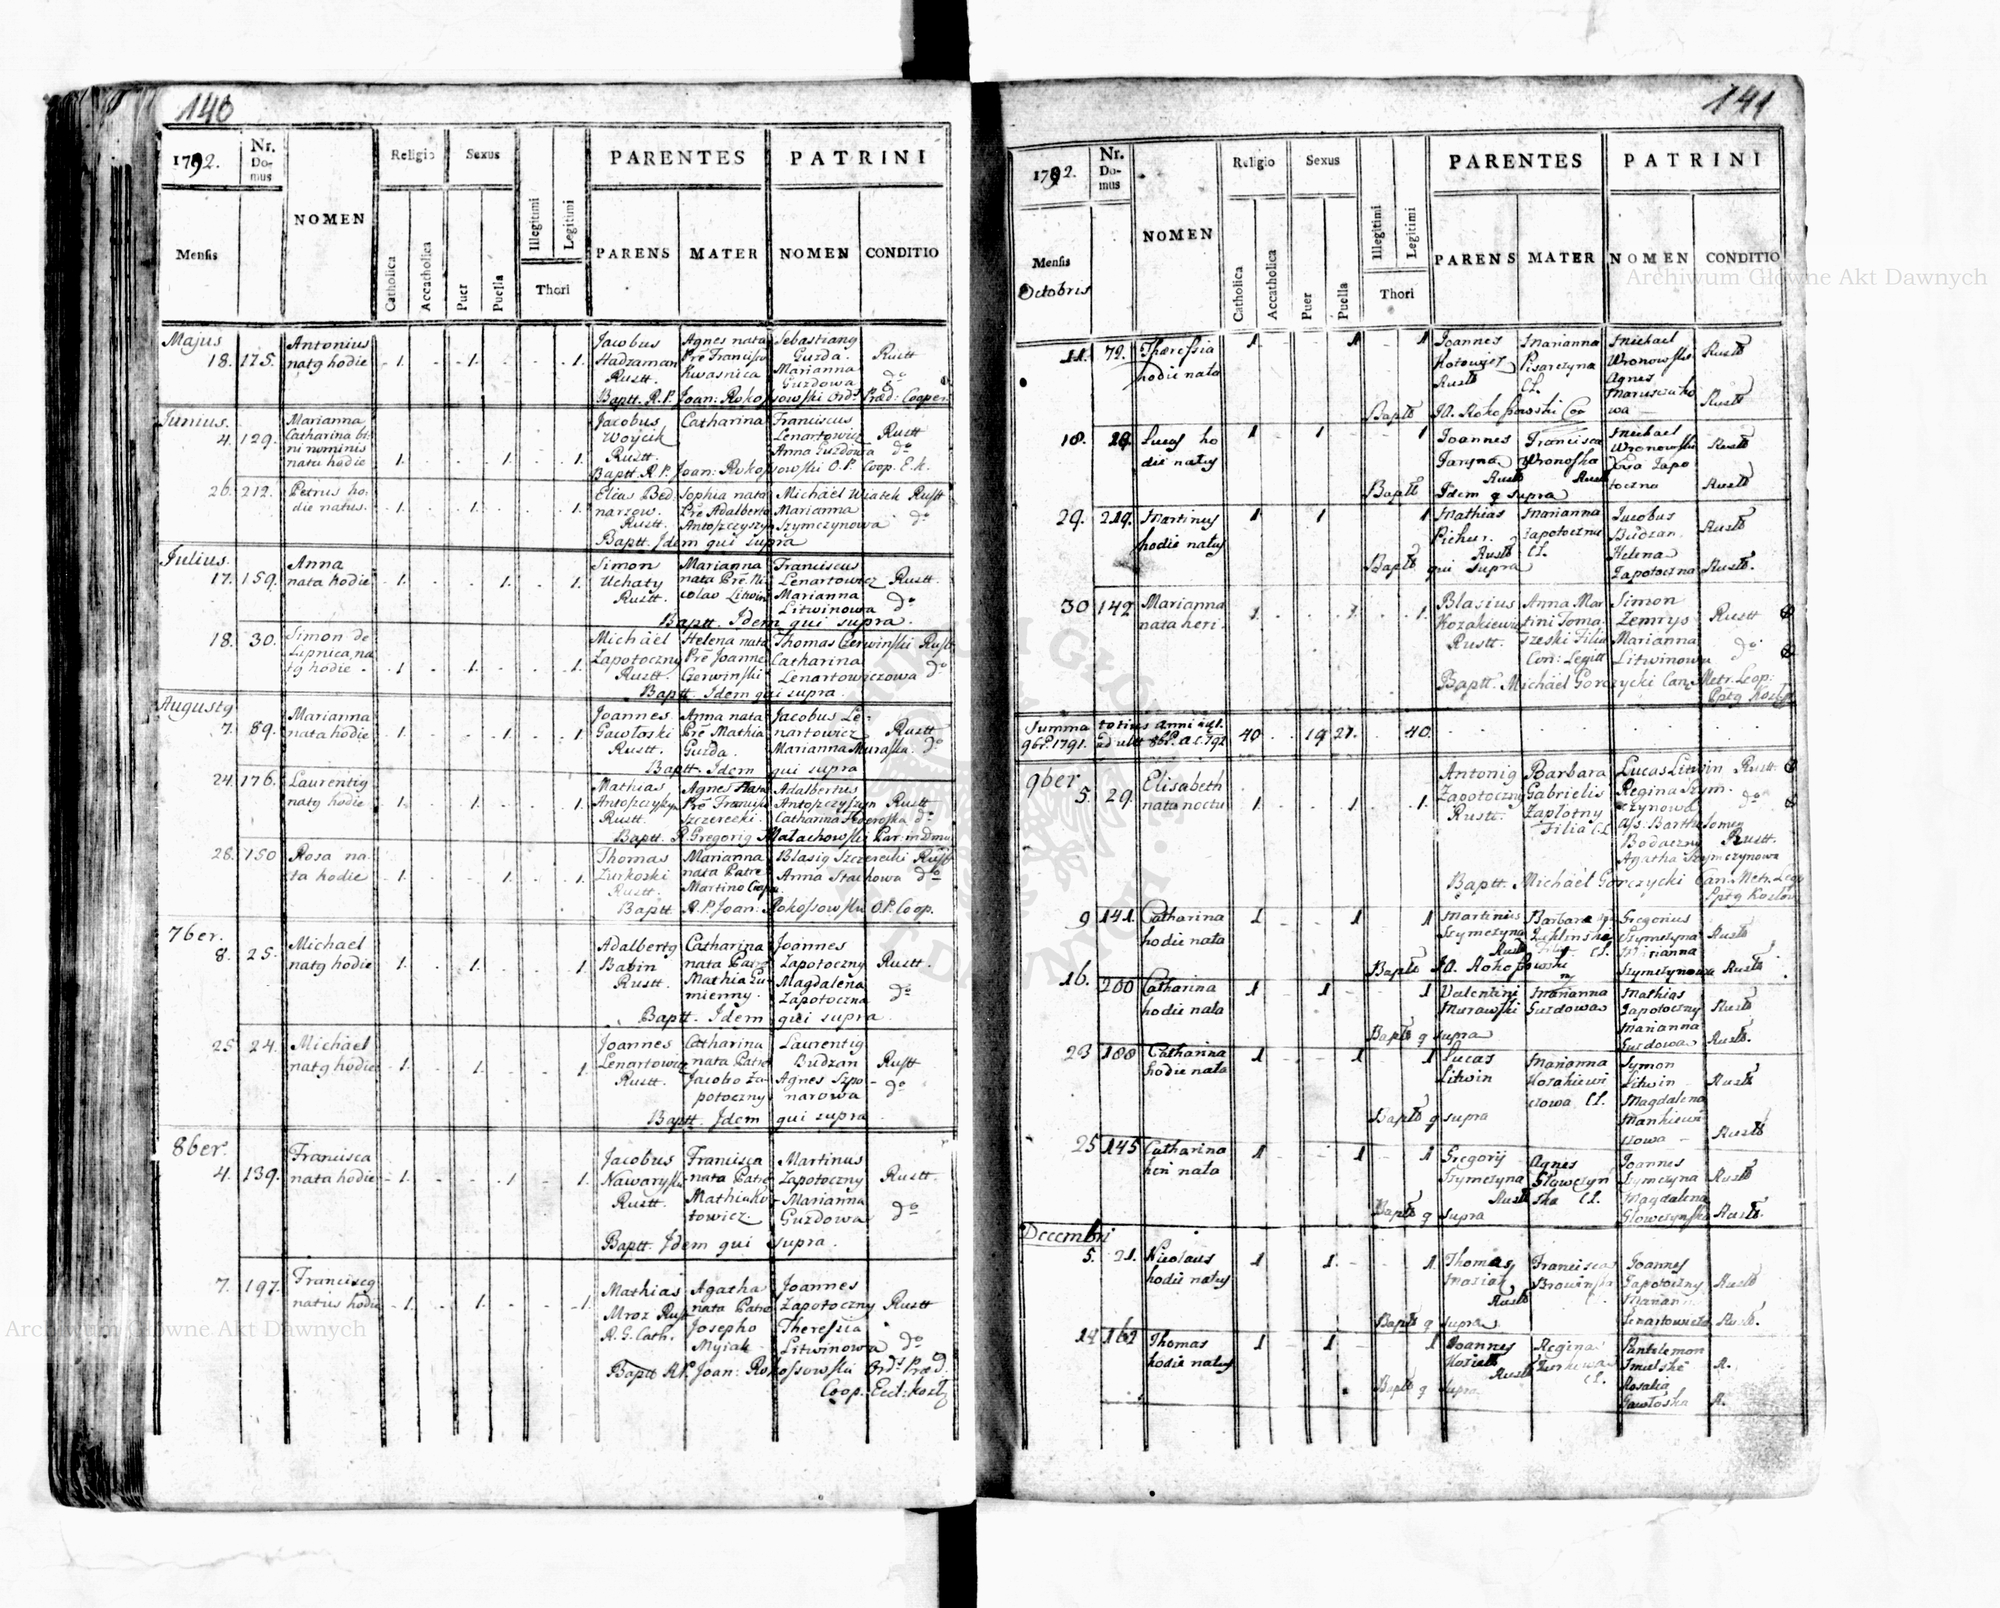 140
1792.
Nr. Domus
NOMEN
Religio
Sexus
Illegitimi
Legitimi
Thori
PARENTES
PATRINI
Mensis
Catholica
Accatholica
Puer
Puella
PARENS
MATER
NOMEN
CONDITIO
Majus
18. 175. Antonius natg hodie 1. 1. 1.
Jacobus Hadzaman Rustt.
Agnes nata Pre Francisco Kwasnica
Sebastiang Guzda. Rustt
Marianna Guzdowa do
Baptt. R.P. Joan: Rokossowski Ord: Præd: Cooper.
Junius.
4. 129. Marianna Catharina bini nominis nata hodie 1. 1. 1.
Jacobus Woycik Rustt.
Catharina
Franciscus Lenartowicz Rustt
Anna Guzdowa do
Baptt. R.P. Joan: Rokossowski O.P. Coop. E.k.
26. 212. Petrus hodie natus. 1. 1. 1.
Elias Bednarzow. Rustt.
Sophia nata Pre Adalberto Antoszczyszyn
Michäel Wiatek Rustt
Marianna Szymczynowa do
Baptt. Idem qui supra
Julius.
17. 159. Anna nata hodie 1. 1. 1.
Simon Uchaty Rustt.
Marianna nata Pre. Nicolao Litwin
Franciscus Lenartowicz Rustt.
Marianna Litwinowa do
Baptt. Idem qui supra.
18. 30. Simon de Lipnica natg hodie 1. 1. 1.
Michäel Zapotoczny Rustt.
Helena nata Pre Joanne Czerwinski
Thomas Czerwinski Rustt
Catharina Lenartowiczowa do
Baptt. Idem qui supra.
Augustg
7. 89. Marianna nata hodie 1. 1. 1.
Joannes Gawloski Rustt.
Anna nata Pre Mathia Guzda.
Jacobus Lenartowicz Rustt
Marianna Muraska do
Baptt. Idem qui supra
24. 176. Laurentig natg hodie 1. 1. 1.
Mathias Antoszczyszyn Rustt.
Agnes nata Pre Francisco Szczerecki.
Adalbertus Antoszczyszyn Rustt
Catharina Federoska do
Baptt. P. Gregorig Małachowski Par: in
28. 150 Rosa nata hodie 1. 1. 1.
Thomas Zurkoski Rustt.
Marianna nata Patre Martino
Blasig Szczerecki Rustt
Anna Stachowa do
Baptt R.P. Joan: Rokossowski O.P. Coop.
7ber.
8. 25. Michael natg hodie 1. 1. 1.
Adalbertg Babin Rustt.
Catharina nata Patre Mathia Gumienny.
Joannes Zapotoczny Rustt.
Magdalena Zapotoczna do
Baptt. Idem qui supra
25 24. Michäel natg hodie 1. 1. 1.
Joannes Lenartowicz Rustt.
Catharina nata Patre Jacobo Zapotoczny
Laurentig Budzan Rustt
Agnes Szponarowa do
Baptt. Idem qui supra
8ber.
4. 139. Francisca nata hodie 1. 1. 1.
Jacobus Nawaryski Rustt.
Francisca nata Patre Mathia
Martinus Zapotoczny Rustt.
Marianna Guzdowa do
Baptt. Idem qui supra.
7. 197. Franciscg natus hodie 1. 1. 1.
Mathias Mroz Rustt R.G. Cath.
Agatha nata Patre Josepho Myjak
Joannes Zapotoczny Rustt
Theressia Litwinowa do
Baptt R.P. Joan: Rokossowski Ord: Præd:
Coop. Eccl: Kozl
141
1792.
Nr. Domus
NOMEN
Religio
Sexus
Illegitimi
Legitimi
Thori
PARENTES
PATRINI
Mensis
Octobris
Catholica
Accatholica
Puer
Puella
PARENS
MATER
NOMEN
CONDITIO
11. 72. Theressia hodie nata 1 1 1
Joannes Rustt
Marianna Pisarczyna CL.
Michael Wronowski Rustt
Agnes Rustt
Baptt JO. Rokossowski Coo
18. 28. Lucas hodie natus 1 1 1
Joannes Jaryna Rustt
Francisca Wronoska Rustt
Michael Wronowski Rustt
Ewa Zapotoczna Rustt
Baptt Idem q supra
29. 219. Martinus hodie natus 1 1 1
Mathias Pichur. Rustt
Marianna Zapotoczna CL.
Jacobus Budzan Rustt
Helena Zapotoczna Rustt.
Baptt qui Supra
30 142 Marianna nata heri. 1. 1. 1.
Blasius Kozakiewicz Rustt.
Anna Martini Tomaszeski Filia Con: Legitt
Simon Zemrys Rustt
Marianna Litwinowa do
Baptt. Michäel Gorczycki Can: Metr. Leop:
Summa totius anni
9br. 1791. ad ult 8br. a.c. 792 40 19 21. 40.
9ber
5. 29. Elisabeth nata noctu 1. 1. 1.
Antonig Zapotoczny Rustt.
Barbara Gabrielis Zaplotny Filia C.L.
Lucas Litwin Rustt.
Regina Szymczynowa do
ass. Bartholomeu Bodaczny Rustt.
Agatha Szymczynowa
Baptt. Michäel Gorczycki Can. Metr. Leop
9 141. Catharina hodie nata 1 1 1
Martinus Szymczyna Rustt
Barbara CL.
Gregorius Szymczyna Rustt
Marianna Szymczynowa Rustt
Baptt JO. Rokossowski
16. 200 Catharina hodie nata 1 1 1
Valentini Murawski
Marianna Guzdowa
Mathias Zapotoczny Rustt
Marianna Guzdowa Rustt.
Baptt q supra
23 188 Catharina hodie nata 1 1 1
Lucas Litwin
Marianna Kozakiewiczowa CL.
Symon Litwin Rustt
Magdalena Rustt
Baptt q supra
25 145 Catharina heri nata 1 1 1
Gregorij Szymczyna Rustt
Agnes CL.
Joannes Szymczyna Rustt
Magdalena Głowczynska Rustt.
Baptt q supra
Decembri
5. 21. Nicolaus hodie natus 1 1. 1
Thomas Rustt
Francisca
Joannes Zapotoczny Rustt
Mariann Lenartowicz Rustt.
Baptt q supra
14 162 Thomas hodie natus 1 1 1
Joannes Rustt
Regina CL.
Pantelemon R.
Rosalia Gawłoska R.
Baptt q supra
Archiwum Główne Akt Dawnych
Archiwum Główne Akt Dawnych